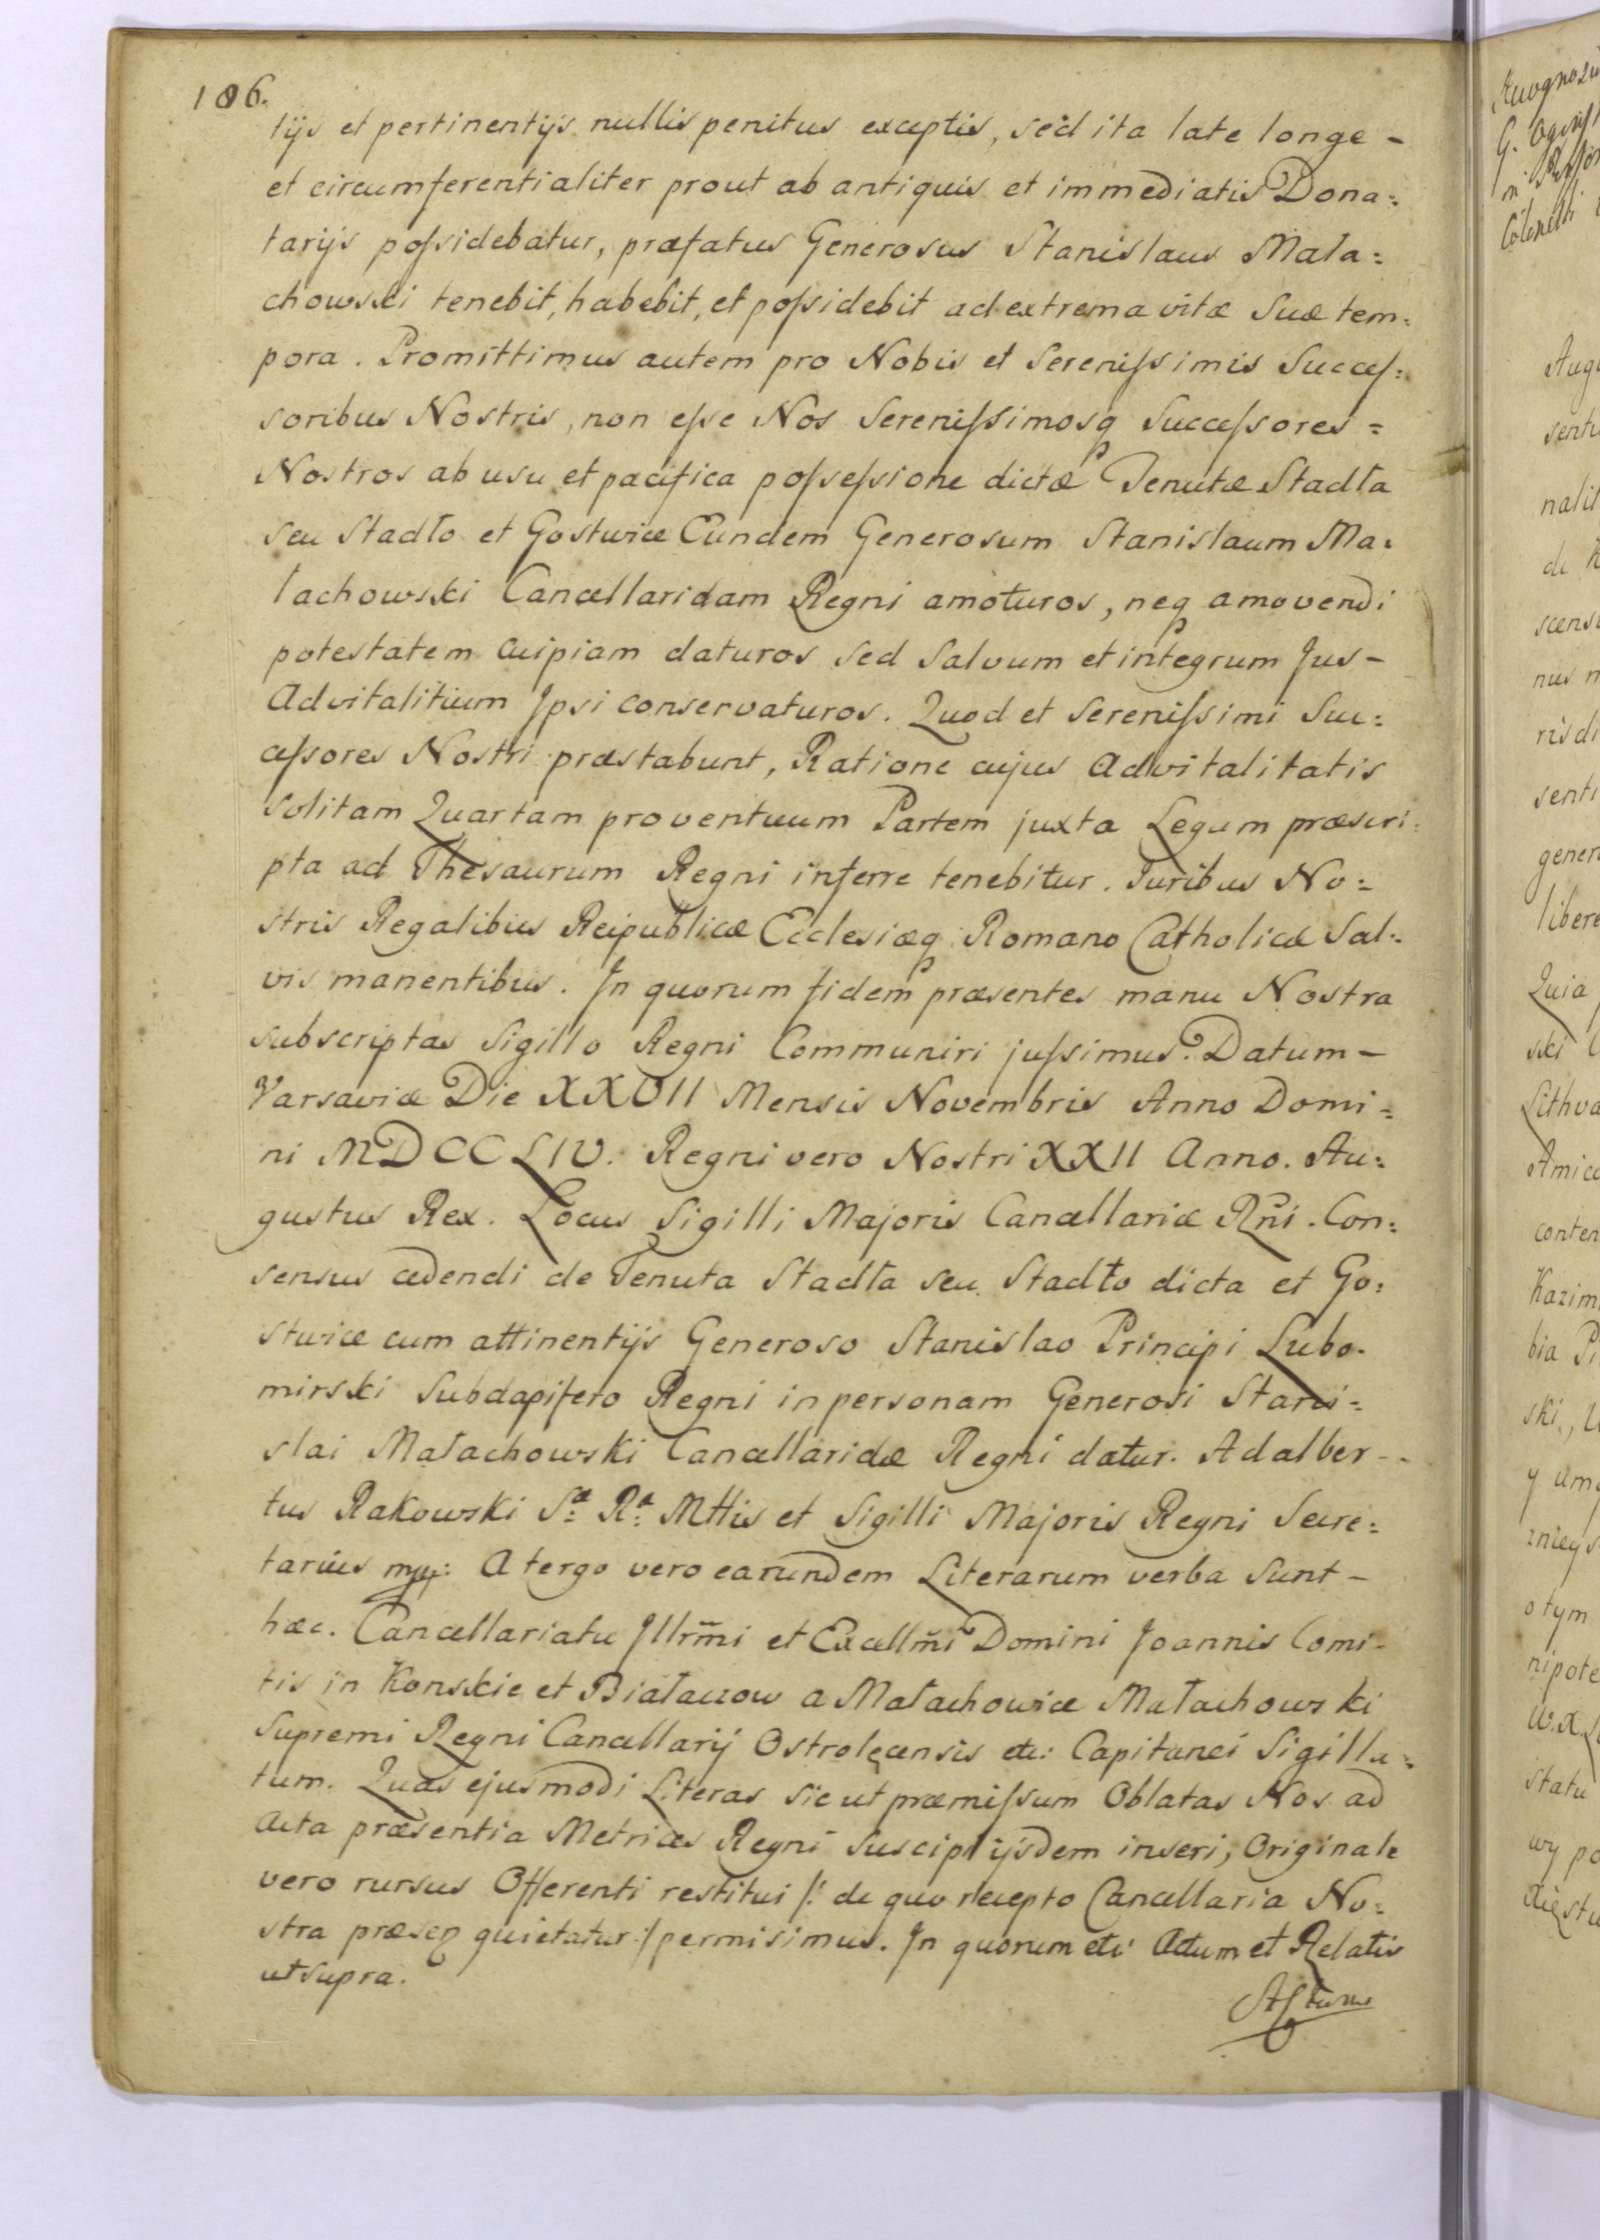 106.
tijs et pertinentijs nullis penitus exceptis, sed ita late longe –
et circumferentialiter prout ab antiquis et immediatis Dona=
tarijs poſsidebatur, præfatus Generosus Stanislaus Mała=
chowski tenebit, habebit, et poſsidebit ad extrema vitæ Suæ tem=
pora. Promittimus autem pro Nobis et Sereniſsimis Succeſ=
soribus Nostris, non eſse Nos Sereniſsimosq Succeſsores =
Nostros ab usu et pacifica poſseſsione dictæ Tenutæ Stadła
seu Stadło et Gostwice Eundem Generosum Stanislaum Ma=
łachowski Cancellaridam Regni amoturos, neq amovendi
potestatem cuipiam daturos sed salvum et integrum Jus –
Advitalitium Ipsi conservaturos. Quod et Sereniſsimi Suc=
ceſsores Nostri præstabunt, Ratione cujus Advitalitatis
solitam Quartam proventuum Partem juxta Legum præscri=
pta ad Thesaurum Regni inferre tenebitur. Juribus No=
stris Regalibus Reipublicæ Ecclesiæq Romano Catholicæ Sal=
vis manentibus. In quorum fidem præsentes manu Nostra
subscriptas Sigillo Regni Communiri juſsimus. Datum –
Varsaviæ Die XXVII Mensis Novembris Anno Domi=
ni MDCCLIV. Regni vero Nostri XXII Anno. Au=
gustus Rex. Locus Sigilli Majoris Cancellariæ Rñi. Con=
sensus cedendi de Tenuta Stadła seu Stadło dicta et Go=
stwice cum attinentijs Generoso Stanislao Principi Lubo=
mirski Subdapifero Regni in personam Generosi Stani=
slai Małachowski Cancellaridæ Regni datur. Adalber=
tus Rakowski Sæ Ræ Mttis et Sigilli Majoris Regni Secre=
tarius mpp: A tergo vero earundem Literarum verba sunt –
hæc. Cancellariatu Jllrm̃i et Excellm̃i Domini Joannis Comi=
tis in Konskie et Białaczow a Małachowice Małachowski
Supremi Regni Cancellarij Ostrolęcensis etc: Capitanei Sigilla=
tum. Quas ejusmodi Literas sic ut præmiſsum Oblatas Nos ad
Acta præsentia Metrices Regni suscipi ijsdem inseri, Originale
vero rursus Offerenti restitui /: de quo recepto Cancellaria No=
stra præsen quietatur :/ permisimus. In quorum etc: Actum et Relatis
ut supra.